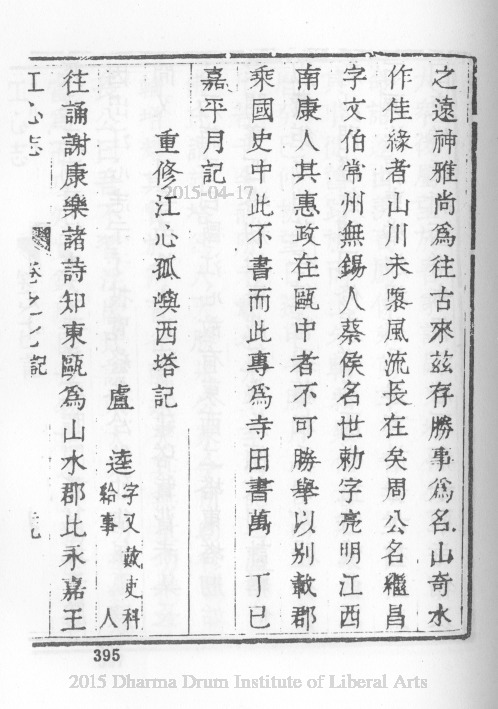 之遠神雅尚爲往古來茲存勝事爲名山奇水
作佳緣者山川未㵼風流長在矣周公名繼昌
字文伯常州無錫人蔡侯名世勅字亮明江西
南康人其惠政在甌中者不可勝舉以別載郡
乘國史中此不書而此專爲寺田書萬 丁巳
嘉平月記
重修江心孤嶼西塔記
盧 逵 字 吏科
給事 人
往誦謝康樂諸詩知東甌爲山水郡比永嘉王
江心志 卷之七 記
395
2015-04-17
2015 Dharma Drum Institute of Liberal Arts